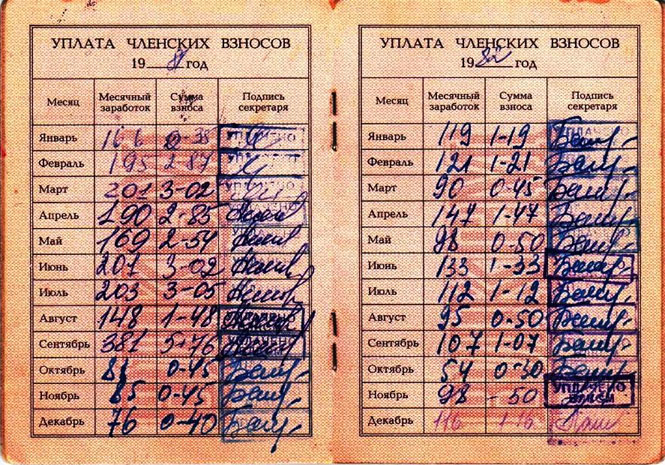 УПЛАТА ЧЛЕНСКИХ ВЗНОСОВ
19 81 год
Месяц Месячный заработок Сумма взноса Подпись секретаря
Январь 166 0-38
Февраль 195 2-87
Март 201 3-02
Апрель 190 2-85
Май 169 2-54
Июнь 207 3-02
Июль 203 3-05
Август 148 1-48
Сентябрь 381 5-76
Октябрь 81 0-45
Ноябрь 85 0-45
Декабрь 76 0-40
УПЛАТА ЧЛЕНСКИХ ВЗНОСОВ
19 82 год
Месяц Месячный заработок Сумма взноса Подпись секретаря
Январь 119 1-19
Февраль 121 1-21
Март 90 0-45
Апрель 147 1-47
Май 98 0-50
Июнь 133 1-33
Июль 112 1-12
Август 95 0-50
Сентябрь 107 1-07
Октябрь 54 0-30
Ноябрь 98 -50 УПЛАЧЕНО
Декабрь 116 1-16